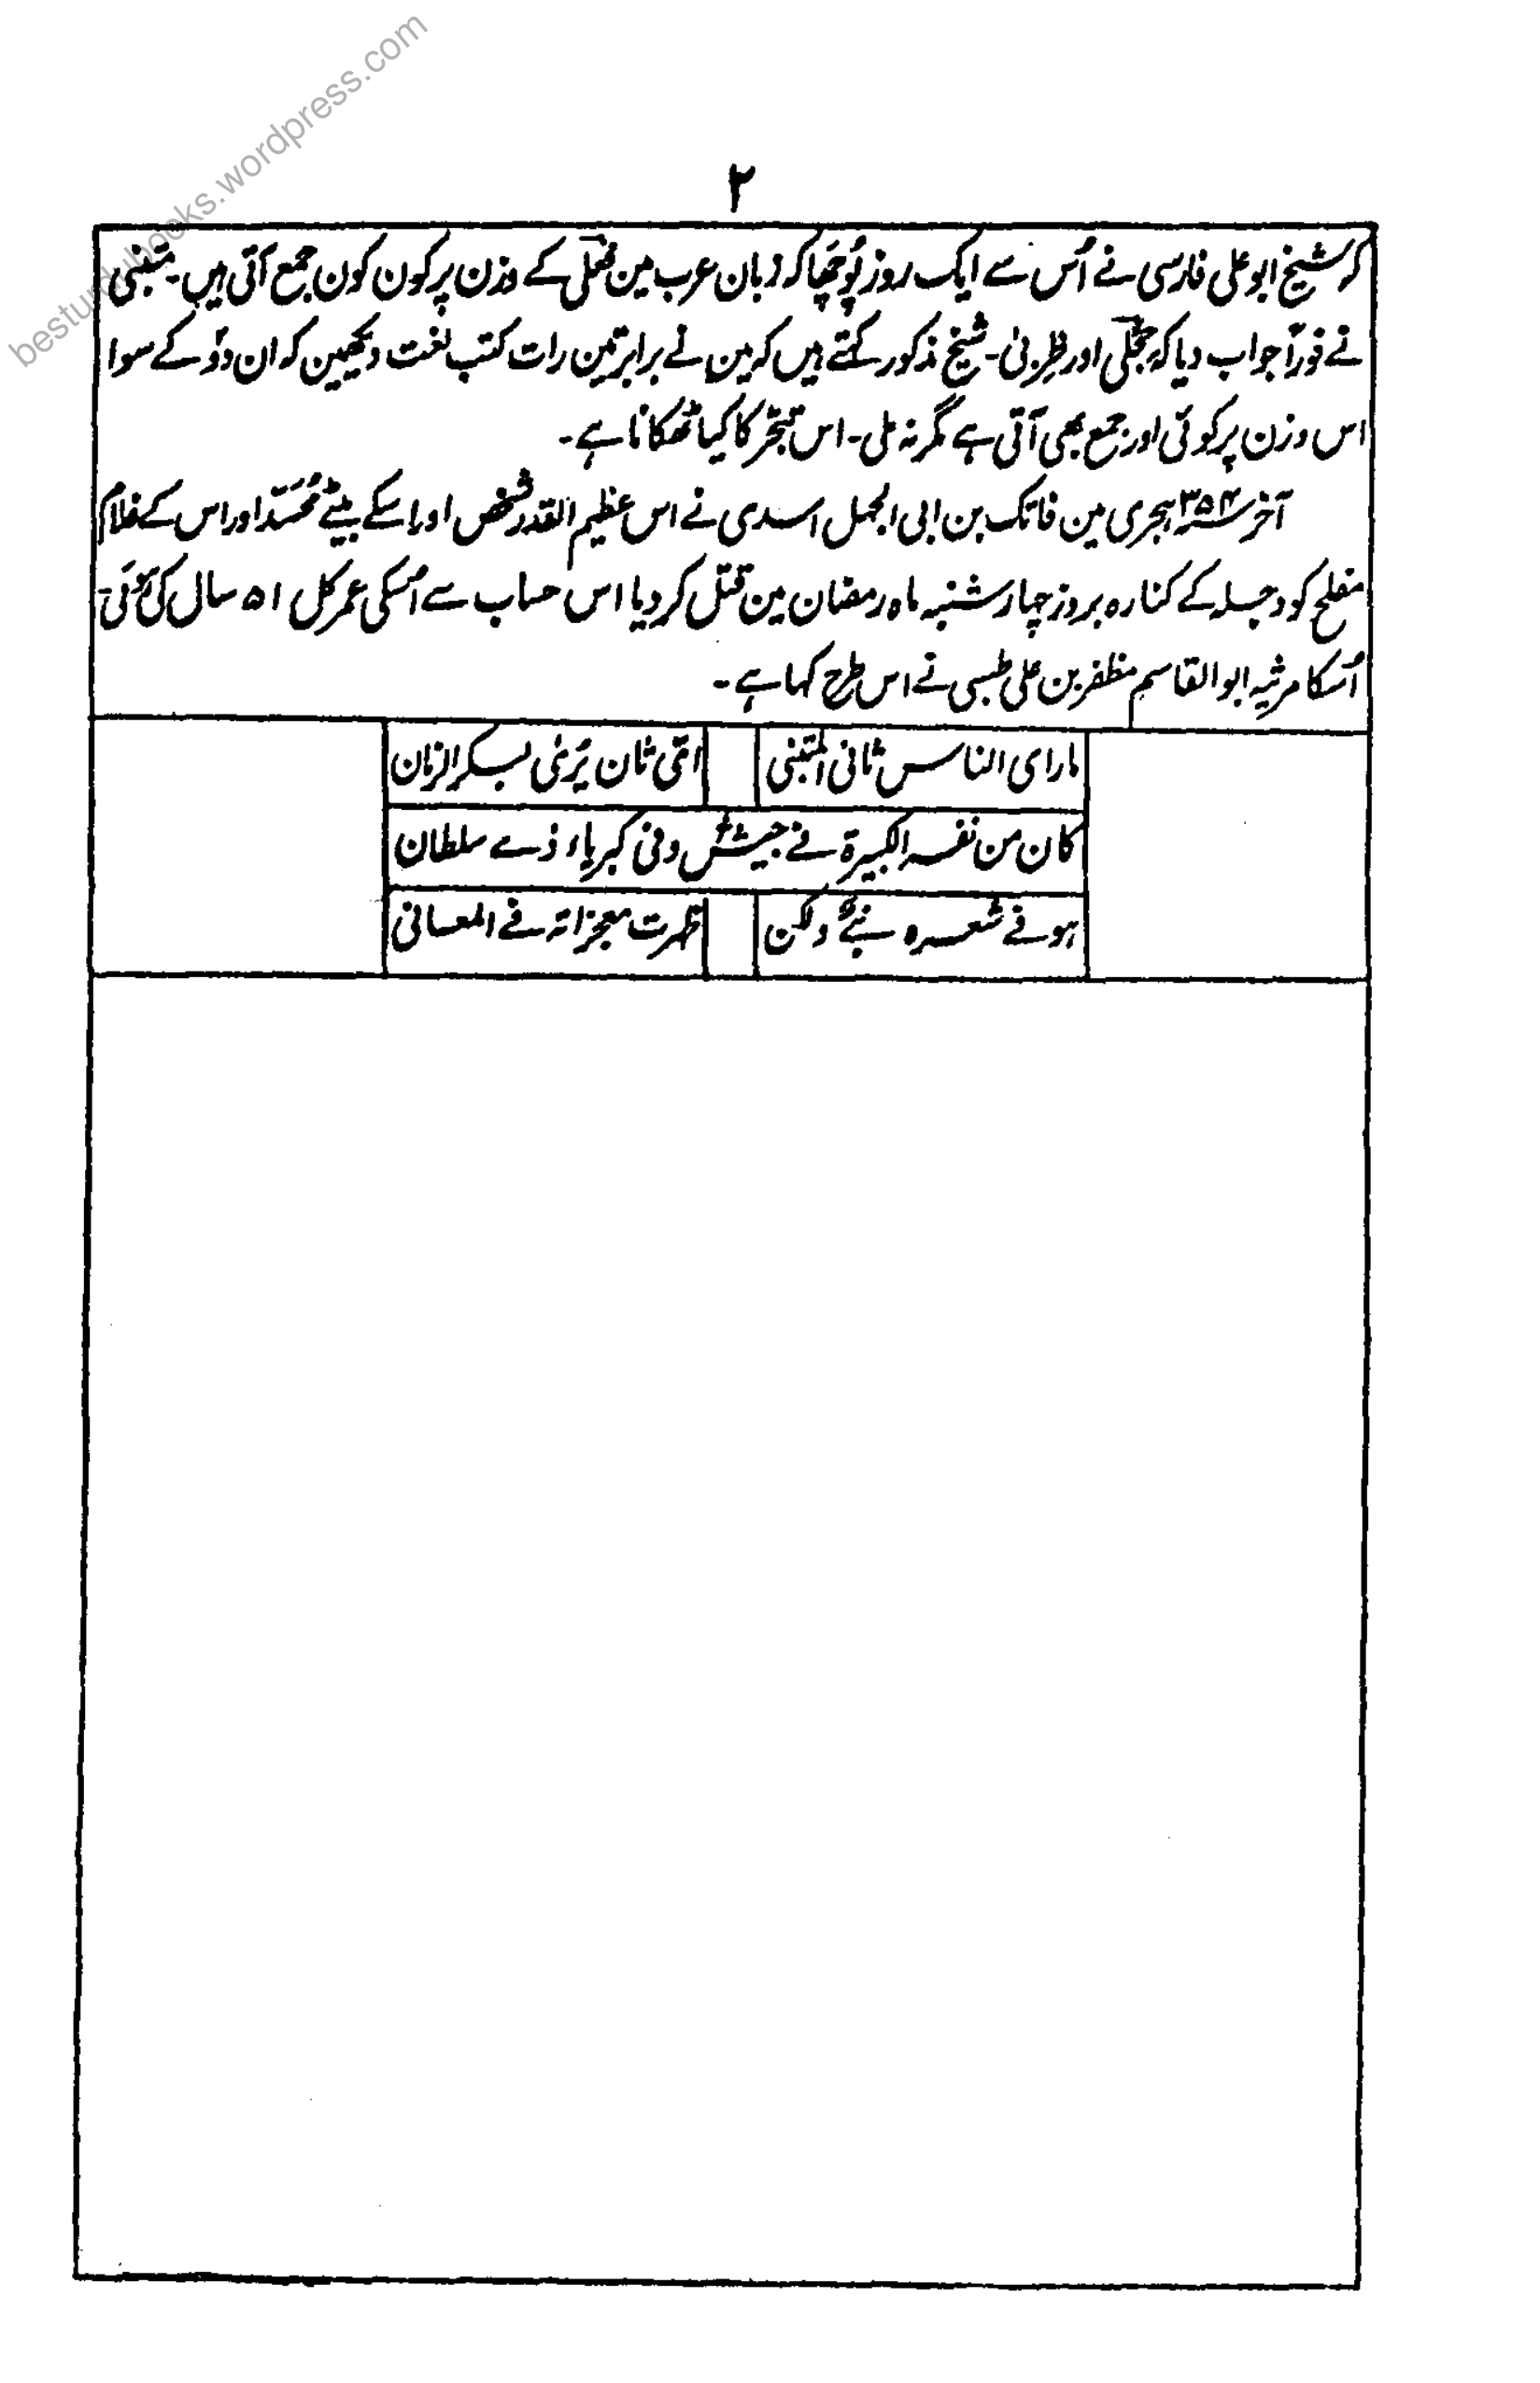 besturdubooks.wordpress.com
۲
کہ شیخ ابو علی فارسی نے اُس سے ایک روز پُوچھا کہ زبان عرب مین فِعلٰی کے وزن پر کون کون جمع آتی ہیں۔ متنبی
نے فوراً جواب دیا کہ حِجلٰی اور ظِربیٰ۔ شیخ مذکور کہتے ہیں کہ مین نے برابر تین رات کتب لغت دیکھین کہ ان دو کے سوا
اس وزن پر کوئی اور جمع بھی آتی ہے مگر نہ ملی۔ اس تبحّر کا کیا ٹھکانا ہے۔
آخر ۳۵۴ ہجری مین فاتک بن ابی الجہل اسدی نے اس عظیم القدر شخص اور اسکے بیٹے مُحَسَّد اور اس کے غلام
مفلح کو دجلہ کے کنارہ بروز چہار شنبہ ماہ رمضان مین قتل کر دیا اس حساب سے اُسکی عمر کل ۵۱ سال کی ہوئی۔
اُسکا مرثیہ ابو القاسم مظفر بن علی طبسی نے اس طرح کہا ہے۔
ما رای الناس ثانی المتنبی ای ثان یُریٰ لبکر الزمان
کان من نفسہ الکبیرۃ فے جیش وفی کبریاء ذے سلطان
ہو فے شعرہ نبیٌ ولکن ظہرت معجزاتہ فے المعانی